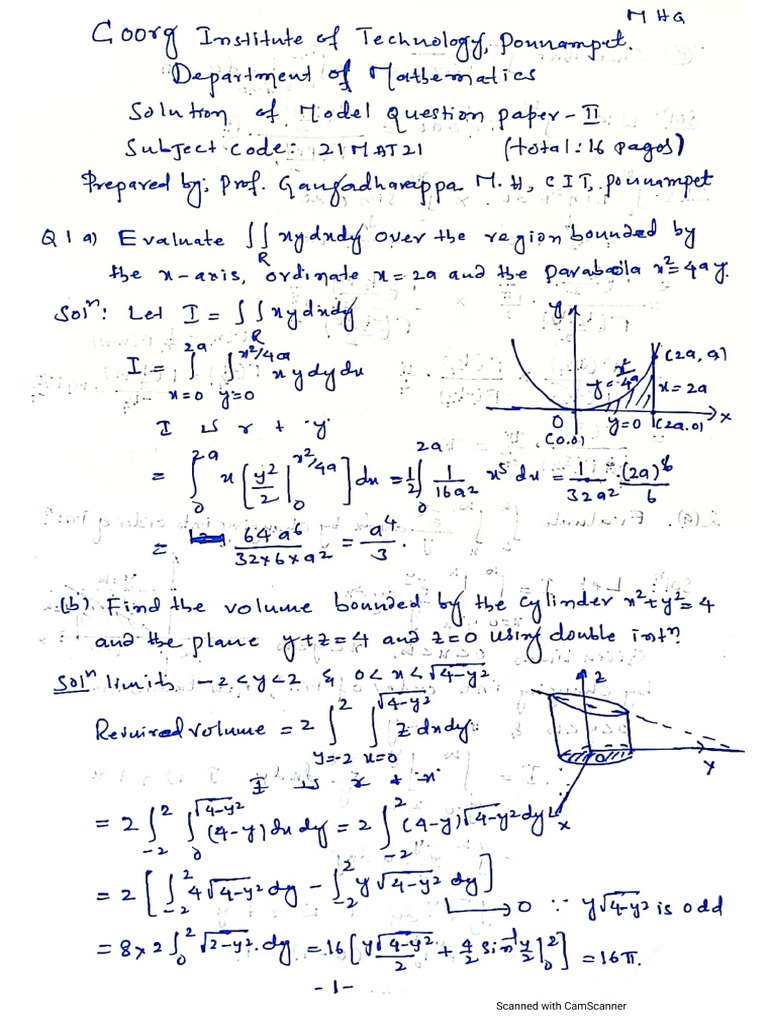 MHG
Coorg Institute of Technology, Ponnampet.
Department of Mathematics
Solution of Model Question paper - II
Subject code: 21MAT21 (total: 16 pages)
Prepared by; Prof. Gangadharappa. M.H, CIT, Ponnampet
Q1a) Evaluate ∫∫_R xy dx dy over the region bounded by
the x-axis, ordinate x = 2a and the parabola x² = 4ay.
Solⁿ: Let I = ∫∫_R xy dx dy
I = ∫_{x=0}^{2a} ∫_{y=0}^{x²/4a} xy dy dx
y
(2a, a)
y = x²/4a
x = 2a
0
(0,0)
y=0
(2a,0)
x
I is r t 'y'
= ∫_0^{2a} x [y²/2 |_0^{x²/4a}] dx = 1/2 ∫_0^{2a} 1/16a² x⁵ dx = 1/32a² · (2a)⁶/6
= 64a⁶/32×6×a² = a⁴/3.
(b). Find the volume bounded by the cylinder x²+y²=4
and the plane y+z=4 and z=0 using double intⁿ.
Solⁿ limits -2<y<2 & 0<x<√4-y²
Required volume = 2 ∫_{y=-2}^{2} ∫_{x=0}^{√4-y²} z dx dy.
z
0
y
x
I is r t 'x'
= 2∫_{-2}^{2} ∫_0^{√4-y²} (4-y) dx dy = 2∫_{-2}^{2} (4-y)√4-y² dy
= 2[∫_{-2}^{2} 4√4-y² dy - ∫_{-2}^{2} y√4-y² dy]
→ 0 ∵ y√4-y² is odd
= 8×2∫_0^2 √2-y². dy = 16[y√4-y²/2 + 4/2 sin⁻¹ y/2 |_0^2] = 16π.
-1-
Scanned with CamScanner